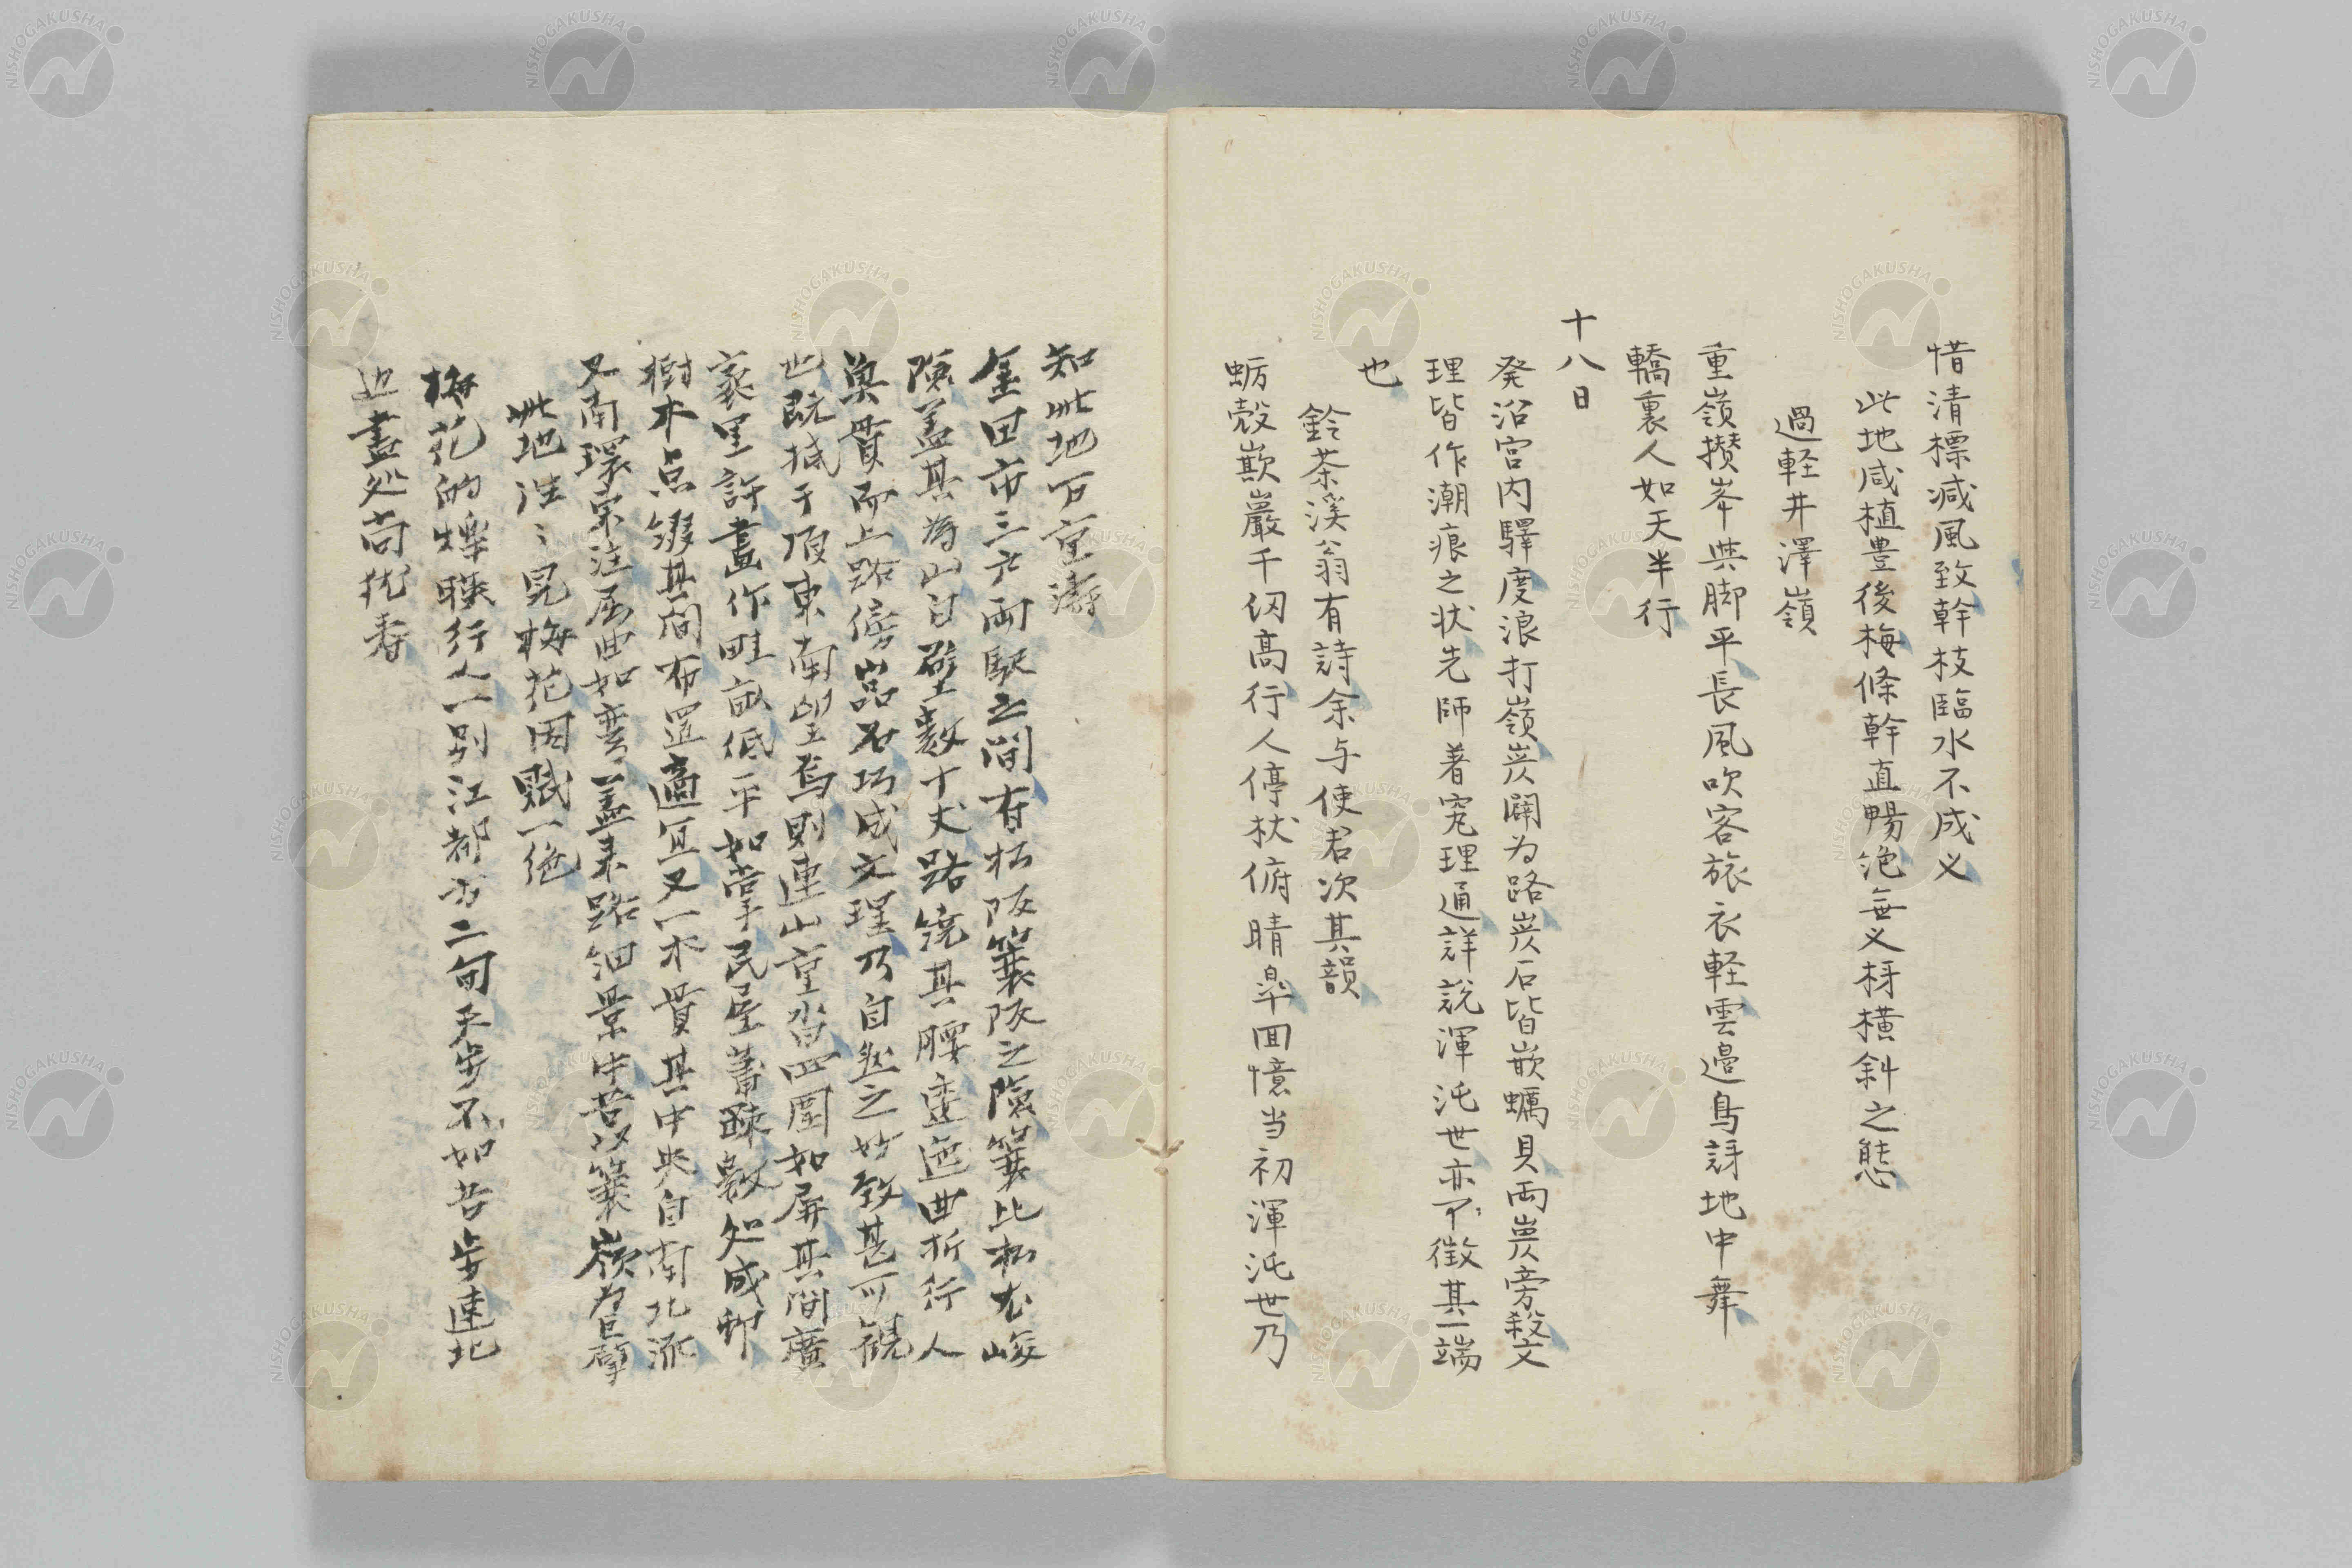 惜清標減風致幹枝臨水不成乂
此地咸植豊後梅條幹直暢絶無乂枒橫斜之態
過軽井澤嶺
重嶺攅峯共脚平長風吹客旅衣軽雲邉鳥訝地中舞
轎裏人如天半行
十八日
発沼宮内驛度浪打嶺炭闢为路炭石皆嵌蠣貝両炭旁殺文
理皆作潮痕之状先師著究理通詳説渾沌世亦不徴其一端
也
鈴茶溪翁有詩余与使君次其韻
蛎殻嵌巖千仭高行人停杖俯晴皐囬憶当初渾沌世乃
知此地万重濤
金田市三戸両駅之間有松阪簑阪之險簑比松尤峻
險盖其為山自壁数十丈路繞其腰逶迤曲折行人
魚貫而上路傍嵒石巧成文理乃自然之竗致甚可観
也既撼于頂東南望焉則連山重沓四圍如屏其間廣
袤里許畫作畦畝低平如掌民屋蕭疎数処成邨
樹木点綴其間布置適宜又一水貫其中央自南北流
又南環東注屈曲如弯盖来路細景中苦以簑嶺为巨擘
此地往〻見梅花因賦一絶
梅花的皪暎行人一別江都方二旬天歩不如吾歩速北
辺盡処尚犹春
NISHOGAKUSHA